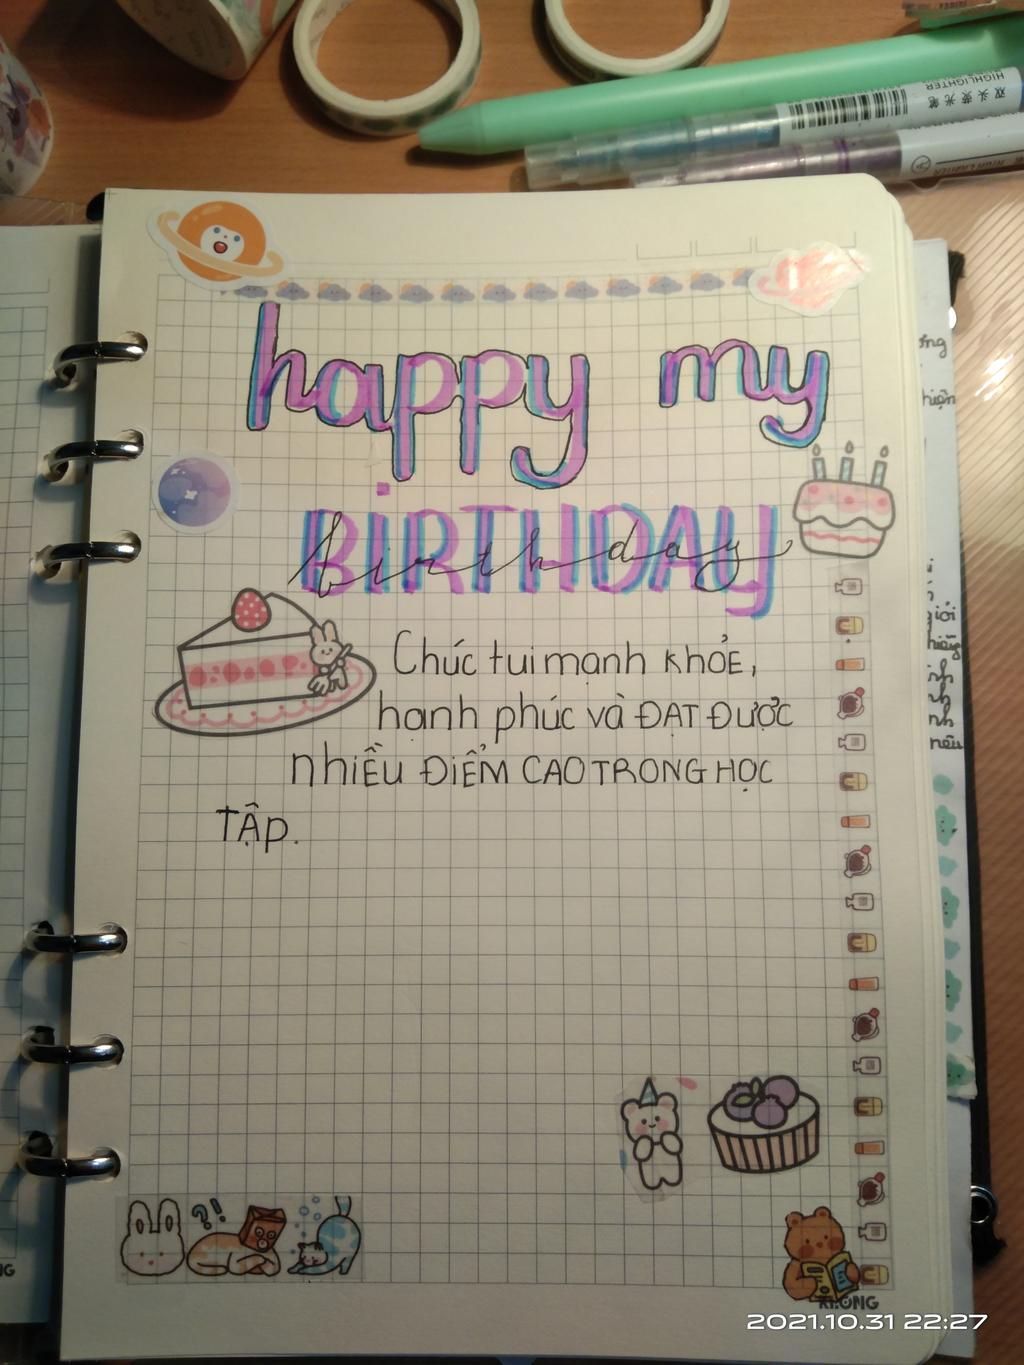 双头荧光笔
HIGHLIGHTER
happy my
BIRTHDAY
birthday
Chúc tui mạnh khỎE,
hạnh phúc và ĐẠT ĐượC
nhiỀu ĐiỂM CAO TRONG HỌC
TẬP.
?!
KLONG
2021.10.31 22:27